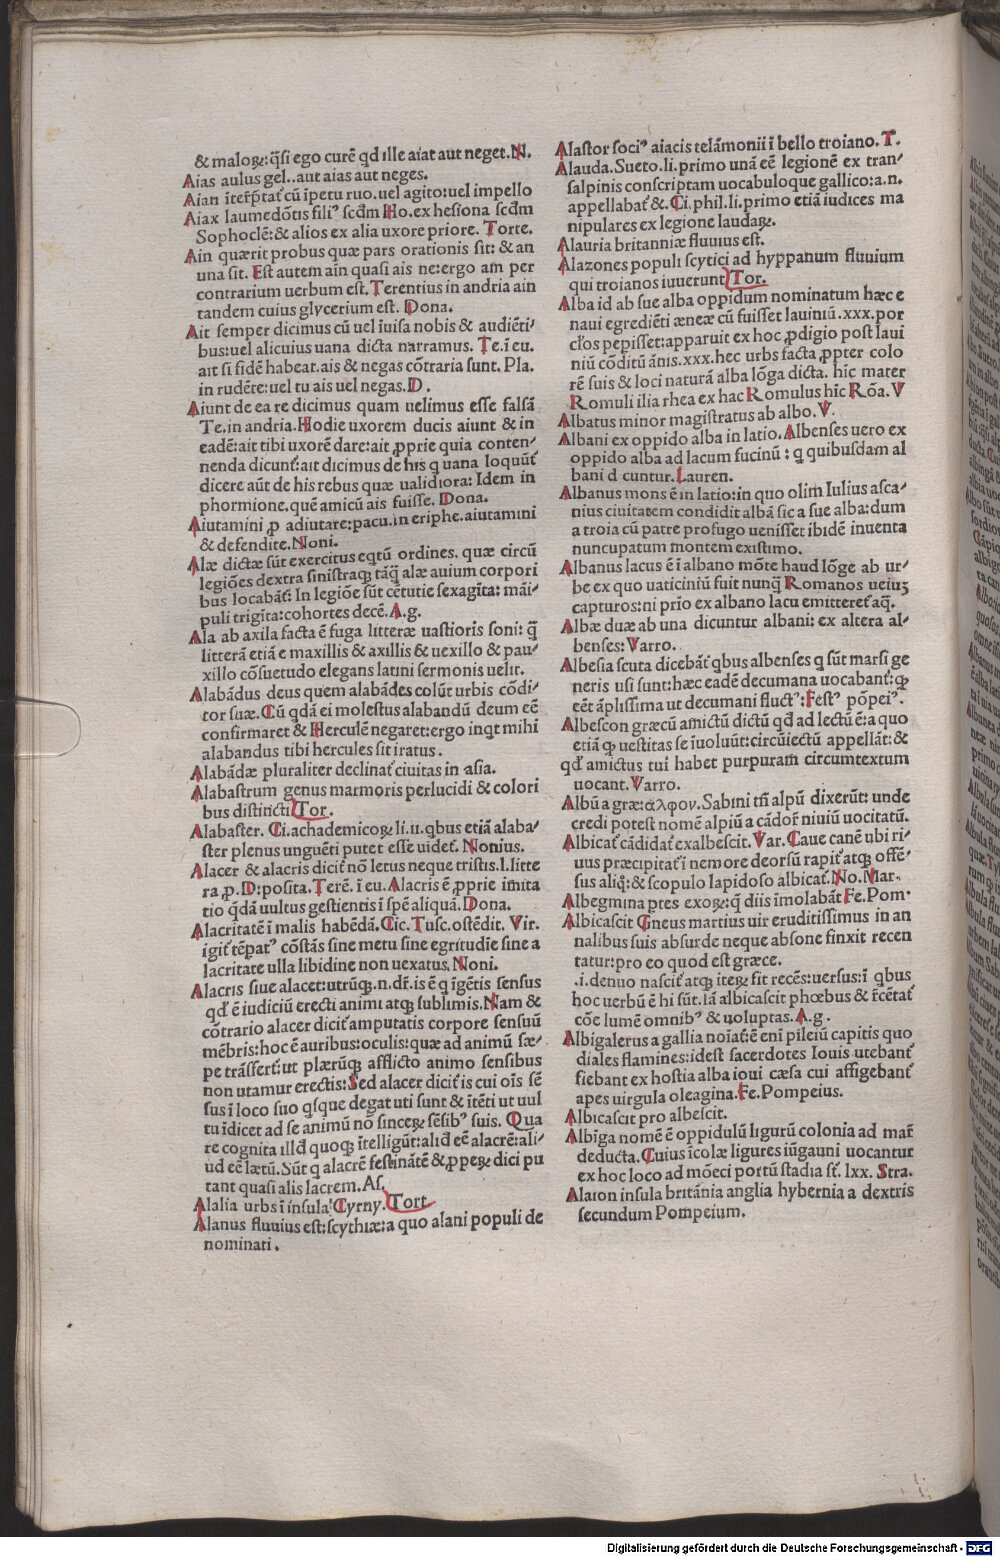 & maloꝝ: q̃si ego curẽ qđ ille aiat aut neget. N.
Aias aulus gel.. aut aias aut neges.
Aian ĩterp̃tat̃ cũ ĩpetu ruo. uel agito: uel impello
Aiax laumedõtis filiꝰ scđm Ho. ex hesiona scđm
Sophoclẽ: & alios ex alia uxore priore. Torte.
Ain quærit probus quæ pars orationis sit: & an
una sit. Est autem ain quasi ais ne: ergo am per
contrarium uerbum est. Terentius in andria ain
tandem cuius glycerium est. Dona.
Ait semper dicimus cũ uel ĩuisa nobis & audiẽti/
bus: uel alicuius uana dicta narramus. Te. ĩ eu.
ait si fidẽ habeat. ais & negas cõtraria sunt. Pla.
in rudẽte: uel tu ais uel negas. D.
Aiunt de ea re dicimus quam uelimus esse falsã
Te. in andria. Hodie uxorem ducis aiunt & in
eadẽ: ait tibi uxorẽ dare: ait ꝓprie quia conten/
nenda dicunt̃: ait dicimus de his q uana loquũt̃
dicere aũt de his rebus quæ ualidiora: Idem in
phormione. quẽ amicũ ais fuisse. Dona.
Aiutamini ꝓ adiutare: pacu. in eriphe. aiutamini
& defendite. Noni.
Alæ dictæ sũt exercitus eqtũ ordines. quæ circũ
legiões dextra sinistraqꝫ tãq̃ alæ auium corpori
bus locabãt̃: In legiõe sũt cẽtutie sexagĩta: mãi/
puli trigĩta: cohortes decẽ. A. g.
Ala ab axila facta ẽ fuga litteræ uastioris soni: q̃
litterã etiã e maxillis & axillis & uexillo & pau/
xillo cõsuetudo elegans latini sermonis uelit.
Alabãdus deus quem alabãdes colũt urbis cõdi/
tor suæ. Cũ qđã ei molestus alabandũ deum eẽ
confirmaret & Herculẽ negaret: ergo inqt mihi
alabandus tibi hercules sit iratus.
Alabãdæ pluraliter declinat̃ ciuitas in asia.
Alabastrum genus marmoris perlucidi & colori
bus distincti Tor.
Alabaster. Ci. achademicoꝝ li. ii. qbus etiã alaba/
ster plenus unguẽti putet esse uidet̃. Nonius.
Alacer & alacris dicit̃ nõ letus neque tristis. l. litte
ra ꝓ. D: posita. Terẽ. ĩ eu. Alacris ẽ ꝓprie imita
tio qđã uultus gestientis ĩ spẽ aliquã. Dona.
Alacritatẽ ĩ malis habẽdã. Cic. Tusc. ostẽdit. Vir.
igit̃ tẽpatꝰ cõstãs sine metu sine egritudĩe sine a
lacritate ulla libidine non uexatus. Noni.
Alacris siue alacer: utrũqꝫ. n. dr̃. is ẽ q ĩgẽtis sensus
qđ ẽ iudiciũ erecti animi atqꝫ sublimis. Nam &
cõtrario alacer dicit̃ amputatis corpore sensuũ
mẽbris: hoc ẽ auribus: oculis: quæ ad animũ sæ/
pe trãsfert̃: ut plærũqꝫ afflicto animo sensibus
non utamur erectis: Sed alacer dicit̃ is cui oĩs sẽ
sus ĩ loco suo qsque degat uti sunt & ĩtẽti ut uul
tu ĩdicet ad se animũ nõ sinceꝝ sẽsibꝰ suis. Qua
re cognita illđ quoqꝫ ĩtelligũt: aliđ eẽ alacrẽ: ali/
uđ eẽ lætũ. Sũt q alacrẽ festinãtẽ & ꝓpeꝝ dici pu
tant quasi alis lacrem. As.
Alalia urbs ĩ insula Cyrny. Tort.
Alanus fluuius est: scythiæ: a quo alani populi de
nominati.
Alastor sociꝰ aiacis telãmonii ĩ bello troiano. T.
Alauda. Sueto. li. primo unã eẽ legionẽ ex tran/
salpinis conscriptam uocabuloque gallico: a. n.
appellabat̃ &. Ci. phil. li. primo etiã iudices ma
nipulares ex legione laudaꝝ.
Alauria britanniæ fluuius est.
Alazones populi scytici ad hyppanum fluuium
qui troianos iuuerunt Tor.
Alba id ab sue alba oppidum nominatum hæc e
naui egrediẽti æneæ cũ fuisset lauiniũ. xxx. por
cl̃os pepisset: apparuit ex hoc ꝓdigio post laui
niũ cõditũ ãnis. xxx. hec urbs facta ꝓpter colo
rẽ suis & loci naturã alba lõga dicta. hic mater
Romuli ilia rhea ex hac Romulus hĩc Rõa. V
Albatus minor magistratus ab albo. V.
Albani ex oppido alba in latio. Albenses uero ex
oppido alba ad lacum fucinũ: q quibusdam al
bani d cuntur. Lauren.
Albanus mons ẽ in latio: in quo olim Iulius asca/
nius ciuitatem condidit albã sic a sue alba: dum
a troia cũ patre profugo uenisset ibidẽ inuenta
nuncupatum montem existimo.
Albanus lacus ẽ ĩ albano mõte haud lõge ab ur/
be ex quo uaticiniũ fuit nunq̃ Romanos ueiuꝫ
capturos: ni prio ex albano lacu emitteret̃ aq̃.
Albæ duæ ab una dicuntur albani: ex altera al/
benses: Varro.
Albesia scuta dicebãt̃ qbus albenses q sũt marsi ge
neris usi sunt: hæc eadẽ decumana uocabant̃: qꝫ
eẽt ãplissima ut decumani fluctꝰ: Festꝰ põpeiꝰ.
Albescon græcũ amictũ dictũ qđ ad lectũ ẽ: a quo
etiã qꝫ uestitas se ĩuoluũt: circũiectũ appellãt: &
qđ amictus tui habet purpuram circumtextum
uocant. Varro.
Albũ a græ: αλφον. Sabini tñ alpũ dixerũt: unde
credi potest nomẽ alpiũ a cãdor̃ niuiũ uocitatũ.
Albicat̃ cãdidat̃ exalbescit. Var. Caue canẽ ubi ri/
uus præcipitat̃ ĩ nemore deorsũ rapit̃ atqꝫ offẽ/
sus aliq̃: & scopulo lapidoso albicat̃. No. Mar.
Albegmina ptes exoꝝ: q̃ diis ĩmolabãt̃ Fe. Pom.
Albicascit Gneus martius uir eruditissimus in an
nalibus suis absurde neque absone finxit recen
tatur: pro eo quod est græce.
.i. denuo nascit̃ atqꝫ iteꝝ fit recẽs: uersus: ĩ qbus
hoc uerbũ ẽ hi sũt. Iã albicascit phœbus & r̃cẽtat̃
cõe lumẽ omnibꝰ & uoluptas. A. g.
Albigalerus a gallia noĩat̃: ẽ enĩ pileiũ capitis quo
diales flamines: idest sacerdotes Iouis utebant̃
fiebant ex hostia alba ioui cæsa cui affigebant̃
apes uirgula oleagina. Fe. Pompeius.
Albicascit pro albescit.
Albĩga nomẽ ẽ oppidulũ ligurũ colonia ad mar̃
deducta. Cuius ĩcolæ ligures iũgauni uocantur
ex hoc loco ad mõeci portũ stadia st̃. lxx. Stra.
Alaion insula britãnia anglia hybernia a dextris
secundum Pompeium.
Digitalisierung gefördert durch die Deutsche Forschungsgemeinschaft - DFG